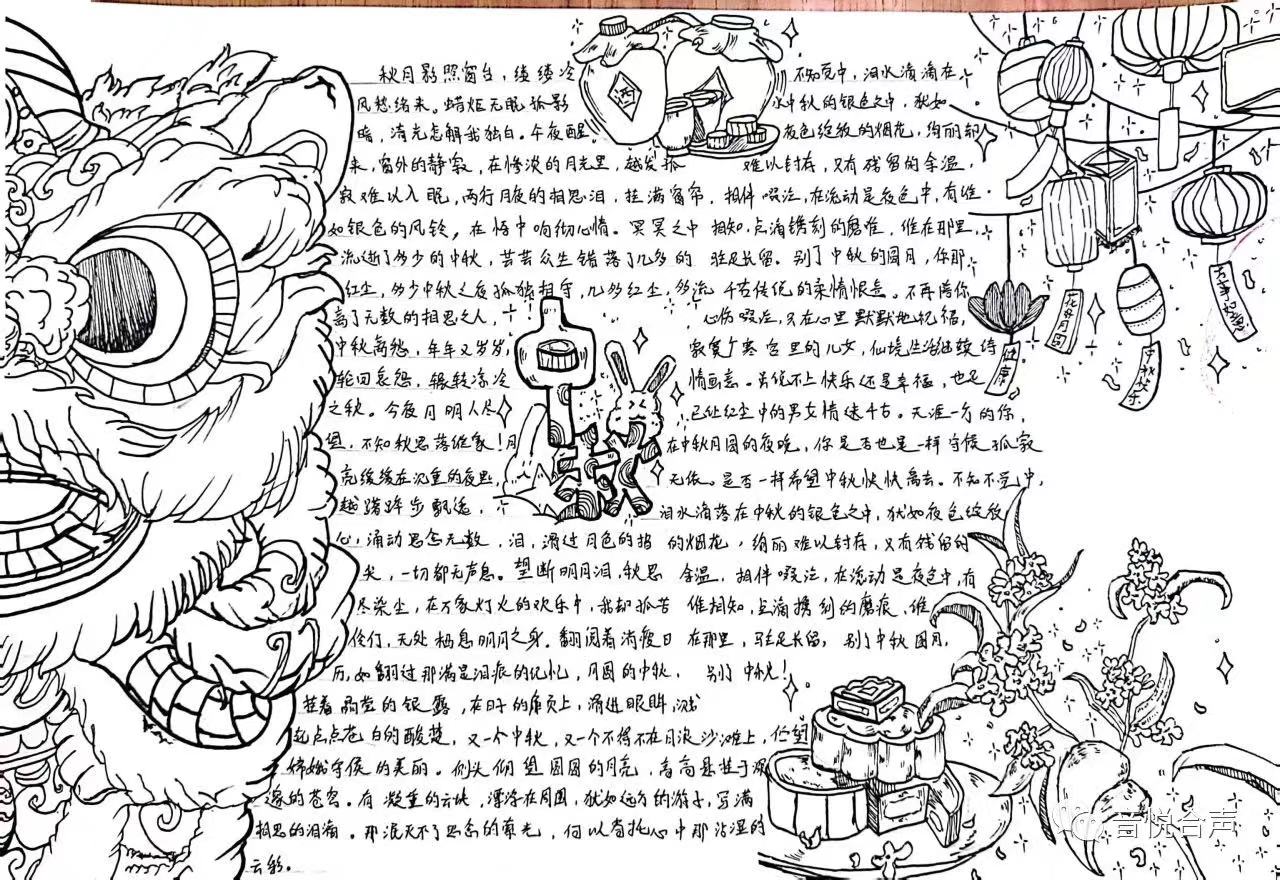 秋月影照窗台，缕缕冷
风愁绪来。蜡炬无眠孤影
暗，清光怎解我独白。今夜醒
来，窗外的静寂，在惨淡的月光里，越发孤
寂难以入眠，两行月度的相思泪，挂满窗帘，
如银色的风铃，在悟中响彻心情。冥冥之中
流逝了多少的中秋，芸芸众生错落了几多的
红尘，多少中秋之夜孤独相守，几多红尘，多流
离了无数的相思之人，
中秋离愁，年年又岁岁，
轮回哀怨，辗转凉冷
之秋。今夜月明人尽
望，不知秋思落谁家！月
亮缓缓在沉重的夜思，
越踏碎步飘逸，
心，涌动思念无数，泪，滑过月色的指
尖，一切都无声息。望断明月泪，秋思
尽染尘，在万家灯火的欢乐中，我却孤苦
伶仃，无处栖息明月之身。翻阅着消瘦日
历，如翻过那满是泪痕的记忆，月圆的中秋，
挂着晶莹的银露，在日子的扉页上，滑进眼眸，溅
起点点苍白的酸楚，又一个中秋，又一个不得不在月浪沙滩上，伫望
嫦娥守侯的美丽。仰头仰望圆圆的月亮，高高悬挂于深
邃的苍穹。有凝重的云块，漂浮在周围，犹如远方的游子，写满
相思的泪滴。那泯灭不了思念的萤光，何以寄托心中那沾湿的
云彩。
不知觉中，泪水滴滴在
水中秋的银色之中，犹如
夜色绽放的烟花，绚丽却
难以封存，又有残留的余温，
相伴啜泣，在流动是夜色中，有谁
相知，点滴镌刻的磨难，谁在那里，
驻足长留。别了中秋的圆月，你那
千古传说的柔情恨意。不再陪你
心伤啜泣，只在心里默默地祝福，
寂寞广寒宫里的儿女，仙境生活继续诗
情画意。虽说不上快乐还是幸福，也足
已让红尘中的男女情迷千古。天涯一方的你，
在中秋月圆的夜晚，你是否也是一样守侯孤寂
无依。是否一样希望中秋快快离去。不知不觉中，
泪水滴落在中秋的银色之中，犹如夜色绽放
的烟花，绚丽难以封存，又有残留的
余温，相伴啜泣，在流动是夜色中，有
谁相知，点滴镌刻的磨痕，谁
在那里，驻足长留，别了中秋圆月，
别了中秋！
酒
中秋
健康
花好月圆
中秋快乐
音悦台声